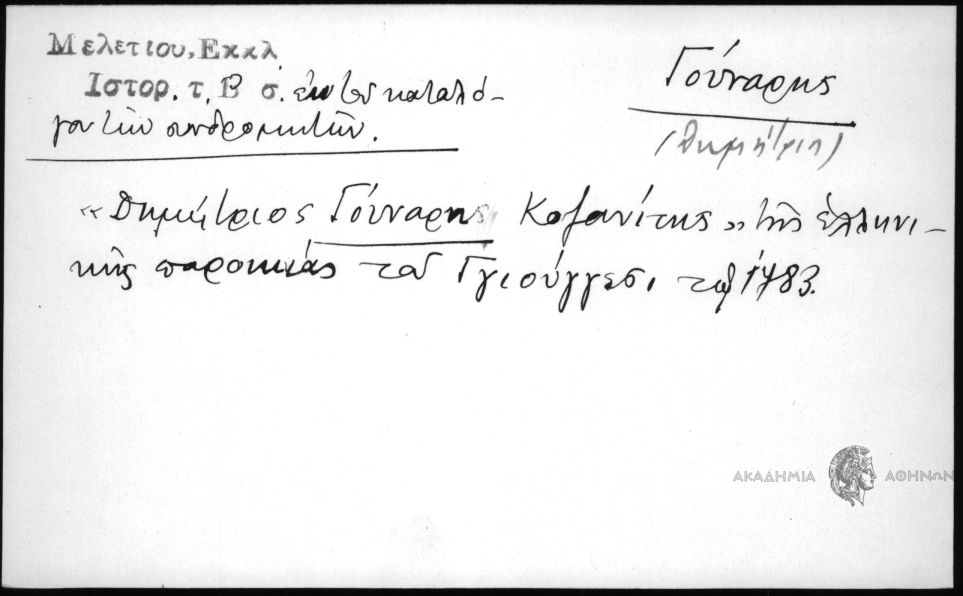 Μελετίου, Εκκλ.
Ιστορ. τ. Β σ. ἐκ τοῦ καταλό-
γου τῶν συνδρομητῶν.
Γούναρης
(Δημήτριος)
«Δημήτριος Γούναρης Κοζανίτης» τῆς ἑλληνι-
κῆς παροικίας τοῦ Γγιούγγεσι, τῷ 1783.
ΑΚΑΔΗΜΙΑ ΑΘΗΝΩΝ